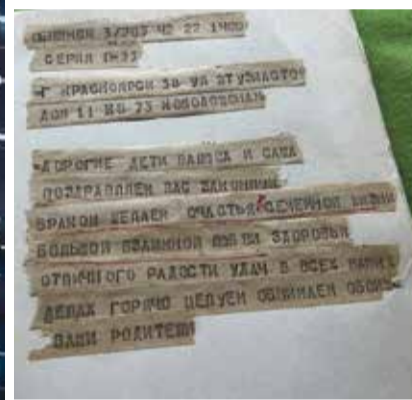 СЕРИЯ
Г КРАСНОЯРСК 38 УЛ
ДОМ 11 КВ 73
ДОРОГИЕ ДЕТИ И САША
ПОЗДРАВЛЯЕМ ВАС ЗАКОННЫМ
БРАКОМ ЖЕЛАЕМ СЧАСТЬЯ СЕМЕЙНОЙ ЖИЗНИ
БОЛЬШОЙ ВЗАИМНОЙ ЛЮБВИ ЗДОРОВЬЯ
ОТЛИЧНОГО РАДОСТИ УДАЧ В ВСЕХ ВАШИХ
ДЕЛАХ ГОРЯЧО ЦЕЛУЕМ ОБНИМАЕМ ОБОИХ
ВАШИ РОДИТЕЛИ